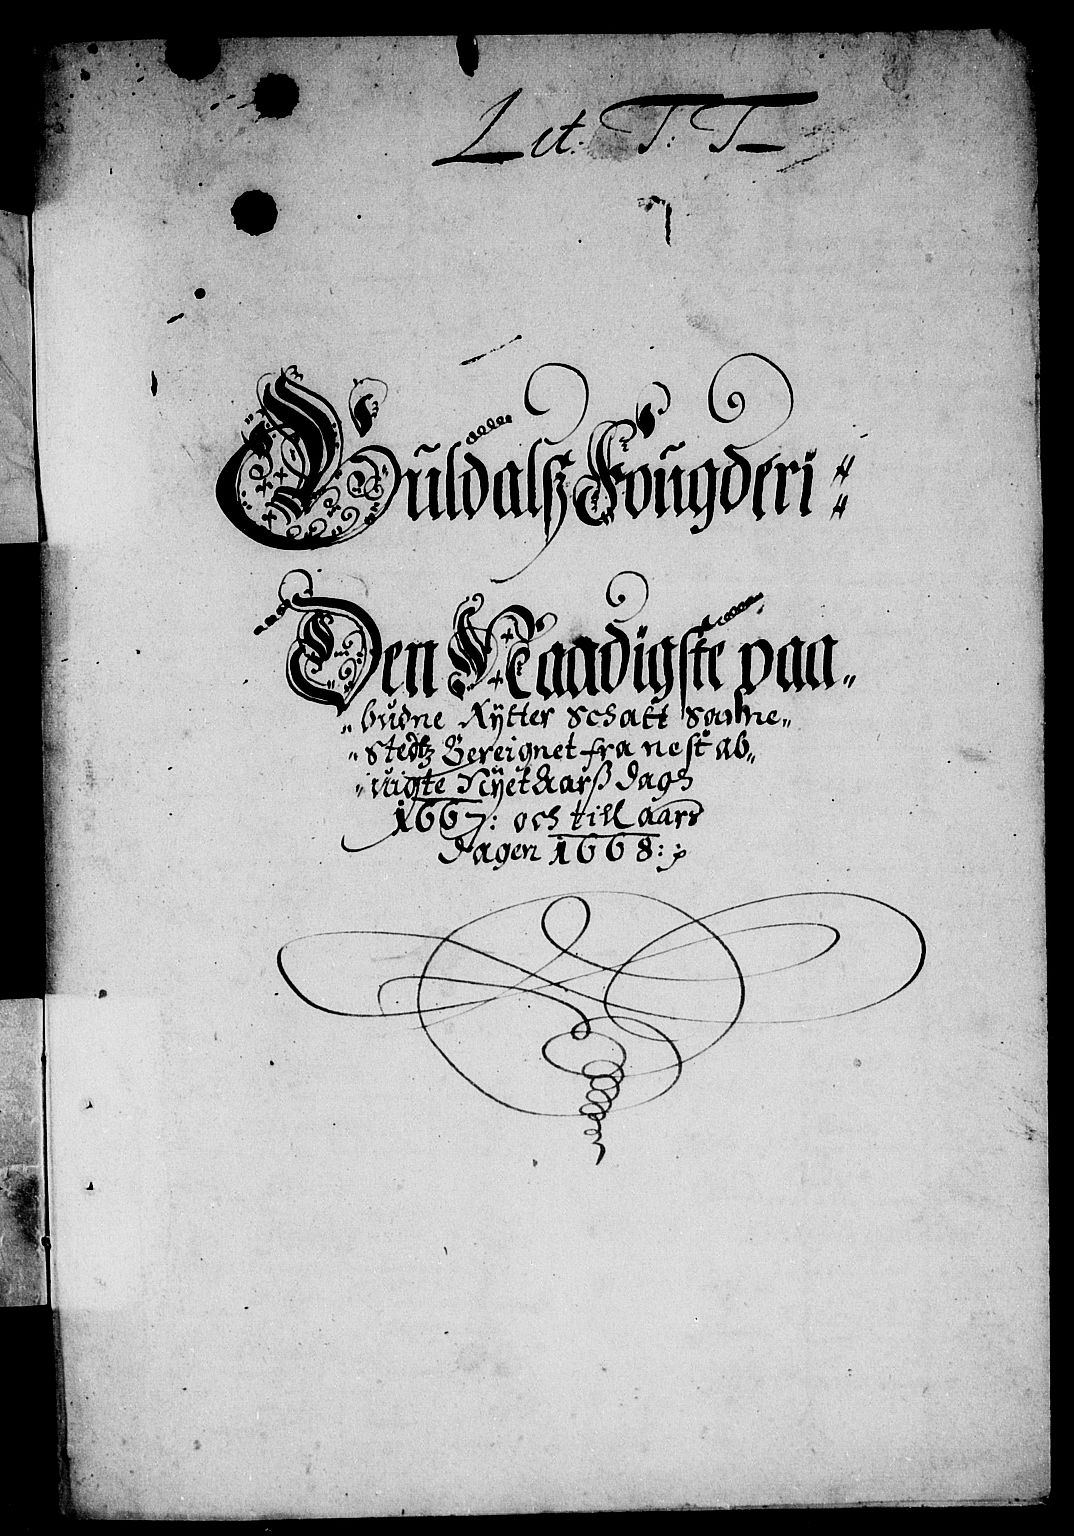 Let. T: T
Guldalsz Fougderi
Den Naadigste paa„
„budne Rÿtter Schatt
„stedtz Bereignet fra nest ab„
„uigte Nÿet Aarß dags
1667: och till aars
dagen 1668: